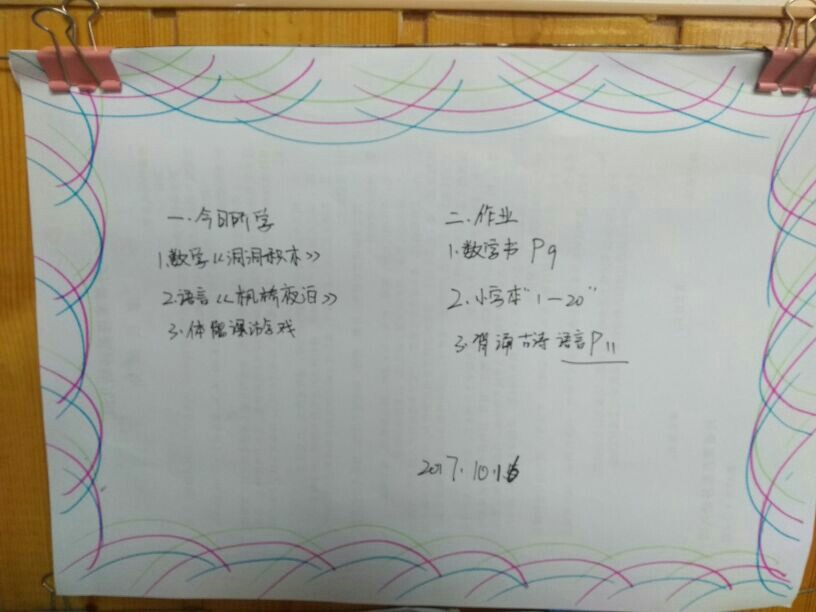 一.今日所学
1.数学《洞洞积木》
2.语言《枫桥夜泊》
3.体能课游戏
二.作业
1.数学书 P9
2.小字本“1—20”
3.背诵古诗 语言P11
2017.10.16